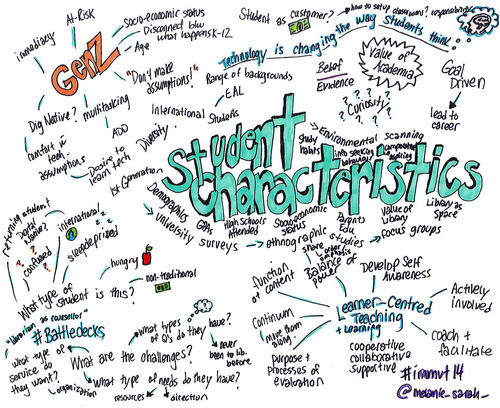 At-Risk
immediacy
Gen Z
Socio-economic status
Disconnect b/w
what happens K-12
Age
"Don't make
assumptions!"
Dig Native?
multitasking
ADD
comfort w/
tech-
assumptions
Desire to
learn tech
Student as customer?
how to setup classrooms?
responsibility
Technology is changing the way students think...
Range of backgrounds
EAL
International Students
Diversity
1st Generation
Belief
Evidence
Value of
Academia
Curiosity
Goal
Driven
lead to
career
Student
Characteristics
Environmental scanning
study
habits
info seeking
behaviour
Demographics
GPAs
High Schools
Attended
Socioeconomic
status
Parents
Edu
Value of
Library
Library as
Space
University surveys
ethnographic
studies
Focus groups
returning student
international
confused
sleep deprived
hungry
not-traditional
What type of
student is this?
"librarian as counsellor"
#Battledecks
what types
of Q's do they have?
never
been to lib.
before
what type of
service do
they want?
What are the challenges?
organization
what type of needs do they have?
resources
direction
Learner-Centred
Teaching
+ Learning
function
of content
share
Balance of
power
Develop Self
Awareness
Actively
involved
coach +
facilitate
cooperative
collaborative
supportive
purpose +
processes of
evaluation
Continuum
move them
along
#immvt14
@melanie_sarah_